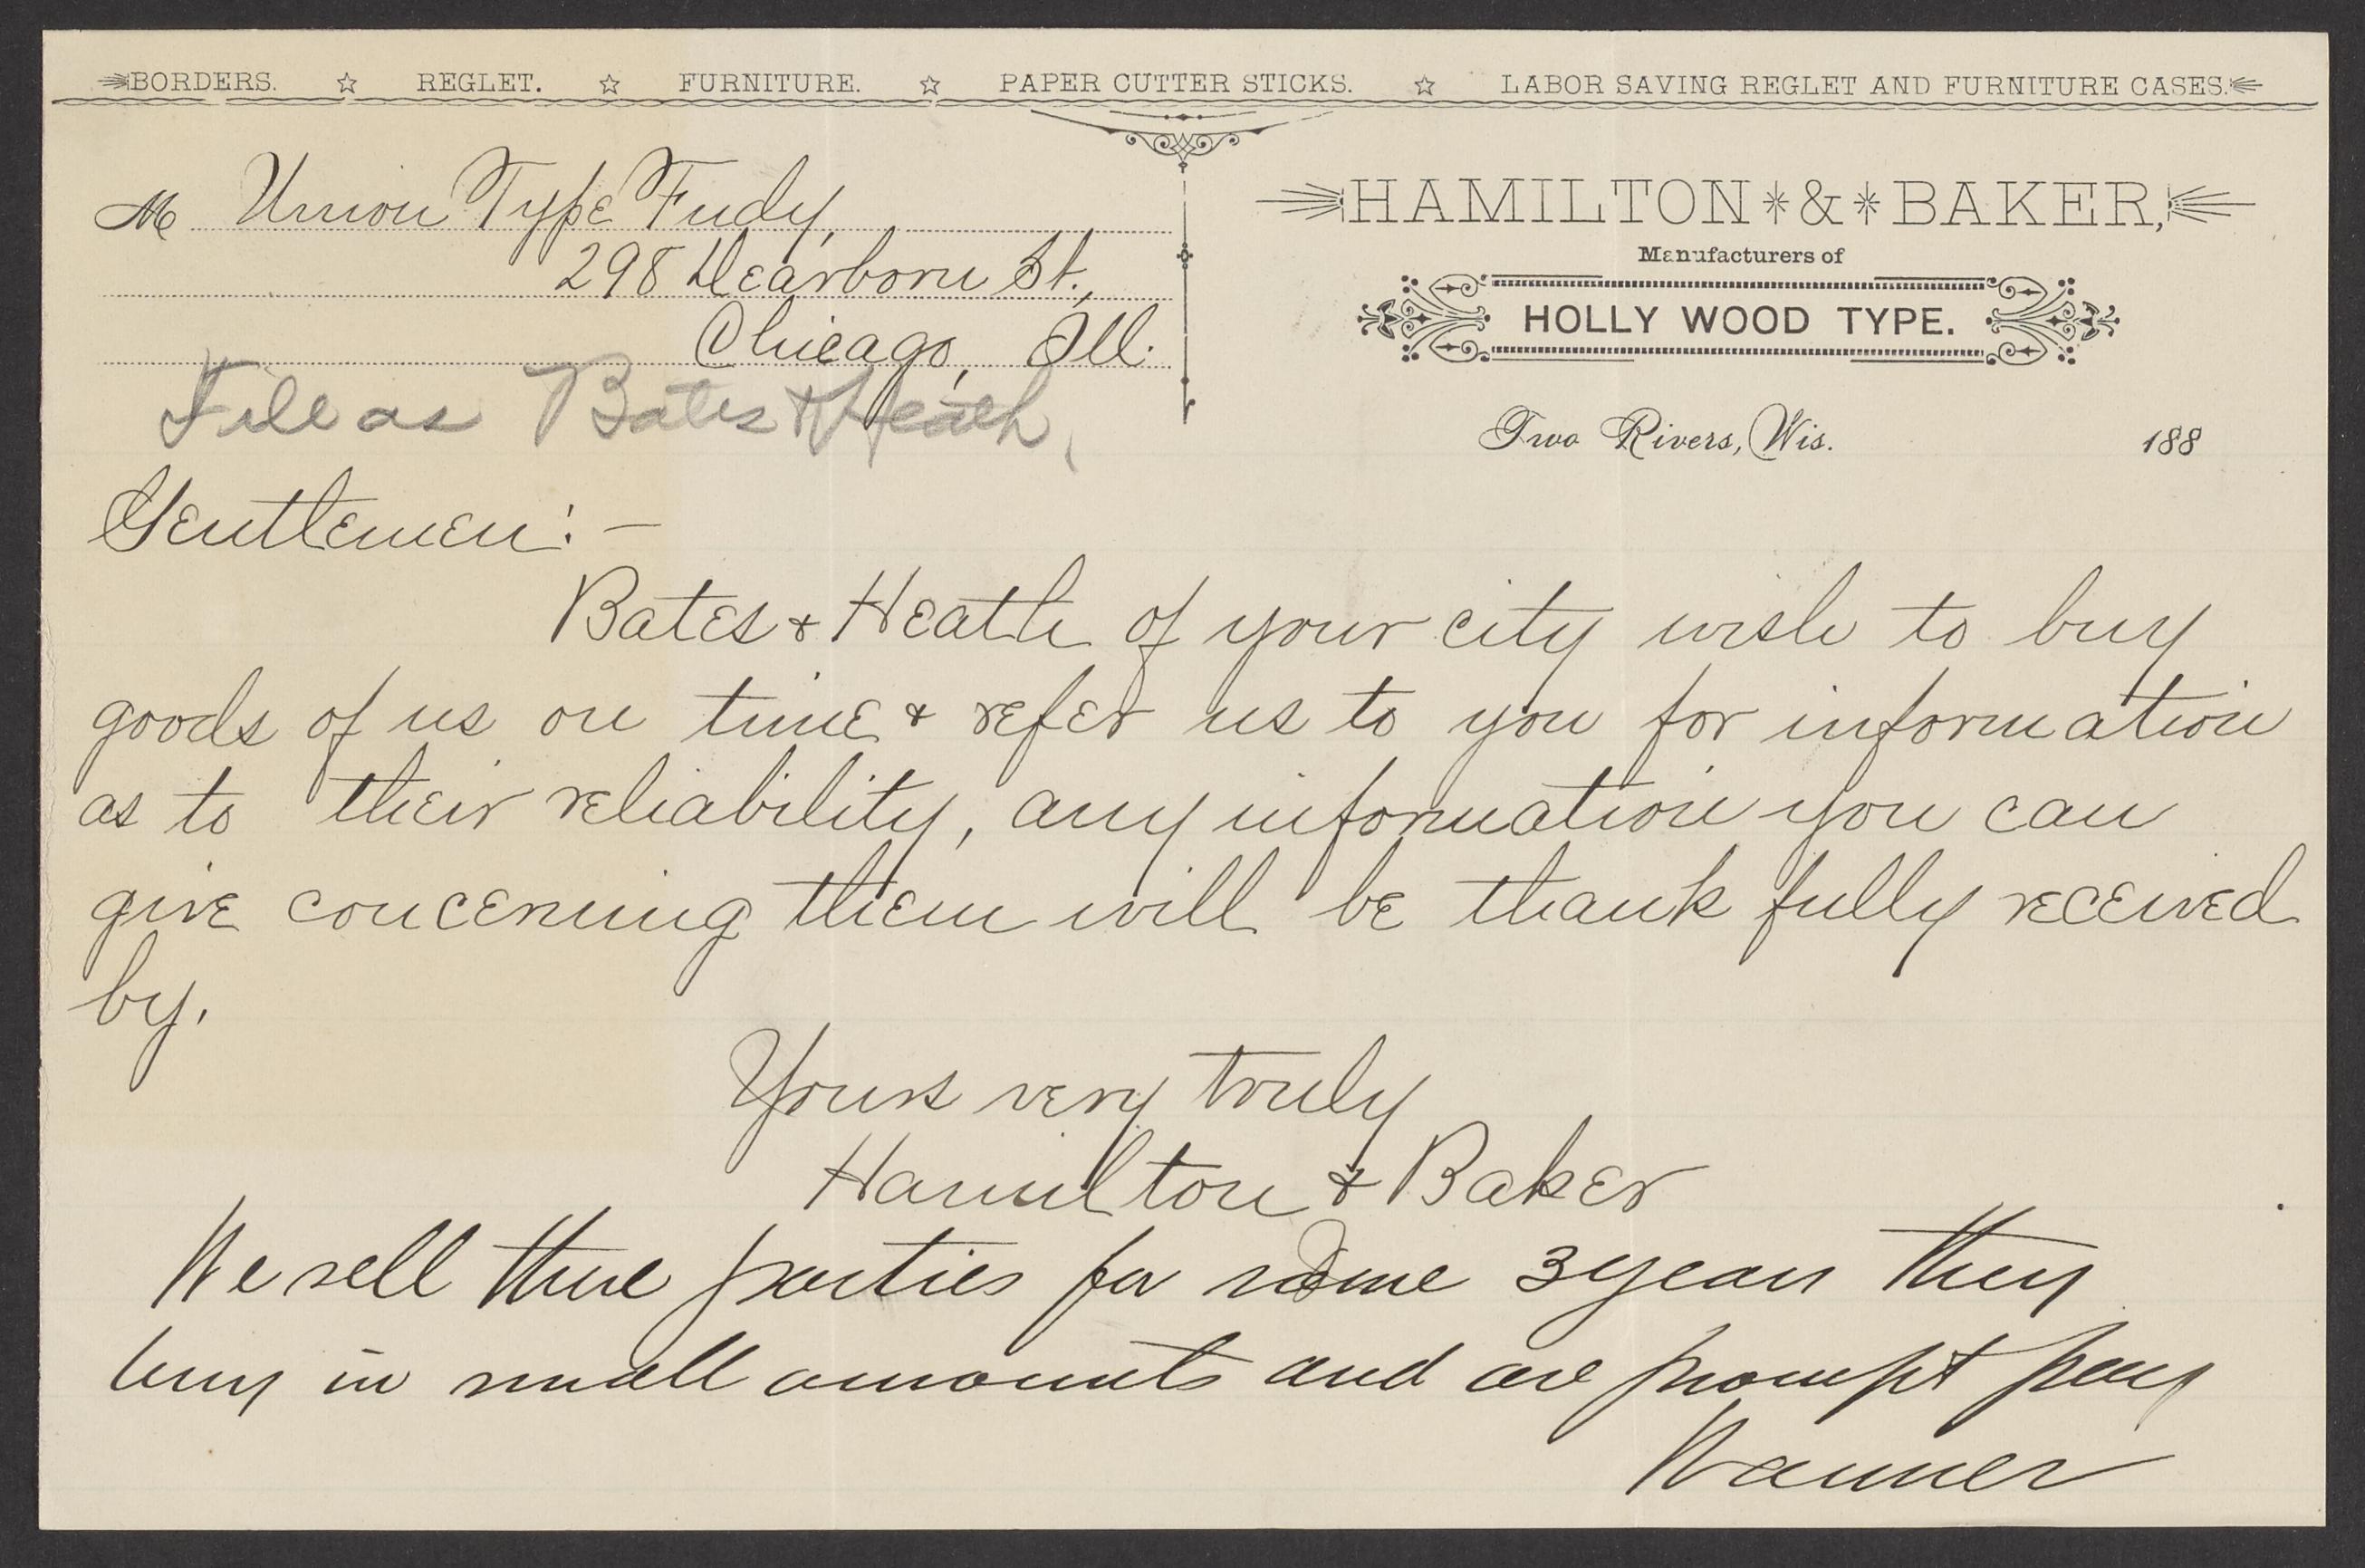 BORDERS. ☆ REGLET. ☆ FURNITURE. ☆ PAPER CUTTER STICKS. ☆ LABOR SAVING REGLET AND FURNITURE CASES.
HAMILTON * & * BAKER,
Manufacturers of
HOLLY WOOD TYPE.
Two Rivers, Wis. 188
M Union Type Fudy,
298 Dearborn St.,
Chicago, Ill.
File as Bates & Heath,
Gentlemen:—
Bates & Heath of your city wish to buy
goods of us on time & refer us to you for information
as to their reliability, any information you can
give concerning them will be thankfully received
by.
Yours very truly
Hamilton & Baker
We sell these parties for some 3 years they
buy in small amounts and are prompt pay
Wanner